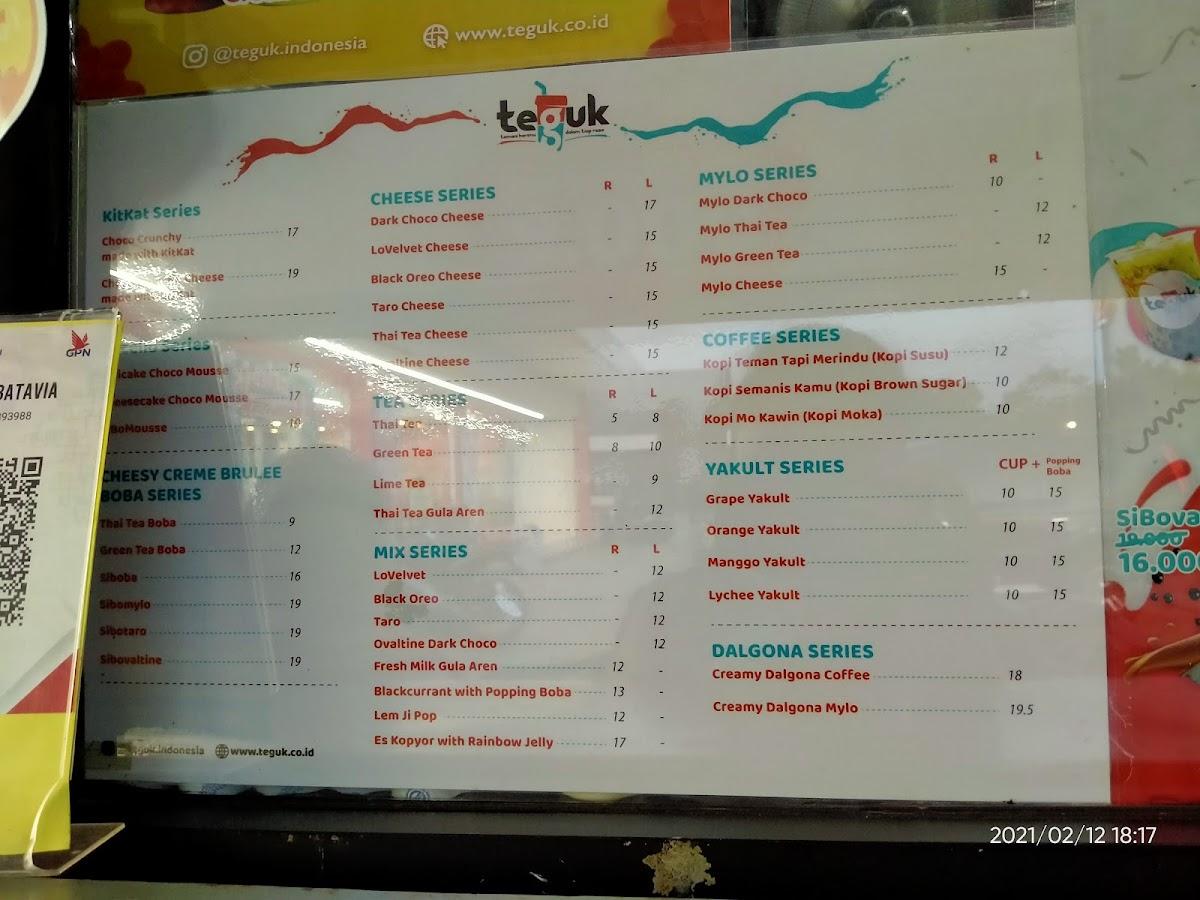 @teguk.indonesia www.teguk.co.id
teguk
KitKat Series
Choco Crunchy 17
made with KitKat
Cheese 19
made
Series
Choco Mousse 15
Choco Mousse 17
CHEESY CREME BRULEE
BOBA SERIES
Thai Tea Boba 9
Green Tea Boba 12
Siboba 16
Sibomylo 19
Sibotaro 19
Sibovaltine 19
teguk.indonesia www.teguk.co.id
CHEESE SERIES R L
Dark Choco Cheese - 17
LoVelvet Cheese - 15
Black Oreo Cheese - 15
Taro Cheese - 15
Thai Tea Cheese - 15
Ovaltine Cheese - 15
TEA SERIES R L
Thai Tea 5 8
Green Tea 8 10
Lime Tea - 9
Thai Tea Gula Aren - 12
MIX SERIES R L
LoVelvet - 12
Black Oreo - 12
Taro - 12
Ovaltine Dark Choco - 12
Fresh Milk Gula Aren 12 -
Blackcurrant with Popping Boba 13 -
Lem Ji Pop 12 -
Es Kopyor with Rainbow Jelly 17 -
MYLO SERIES R L
Mylo Dark Choco 10 -
Mylo Thai Tea - 12
Mylo Green Tea - 12
Mylo Cheese 15 -
COFFEE SERIES
Kopi Teman Tapi Merindu (Kopi Susu) 12
Kopi Semanis Kamu (Kopi Brown Sugar) 10
Kopi Mo Kawin (Kopi Moka) 10
YAKULT SERIES CUP + Popping Boba
Grape Yakult 10 15
Orange Yakult 10 15
Manggo Yakult 10 15
Lychee Yakult 10 15
DALGONA SERIES
Creamy Dalgona Coffee 18
Creamy Dalgona Mylo 19.5
GPN
BATAVIA
93988
teguk
SiBova
19.000
16.000
2021/02/12 18:17